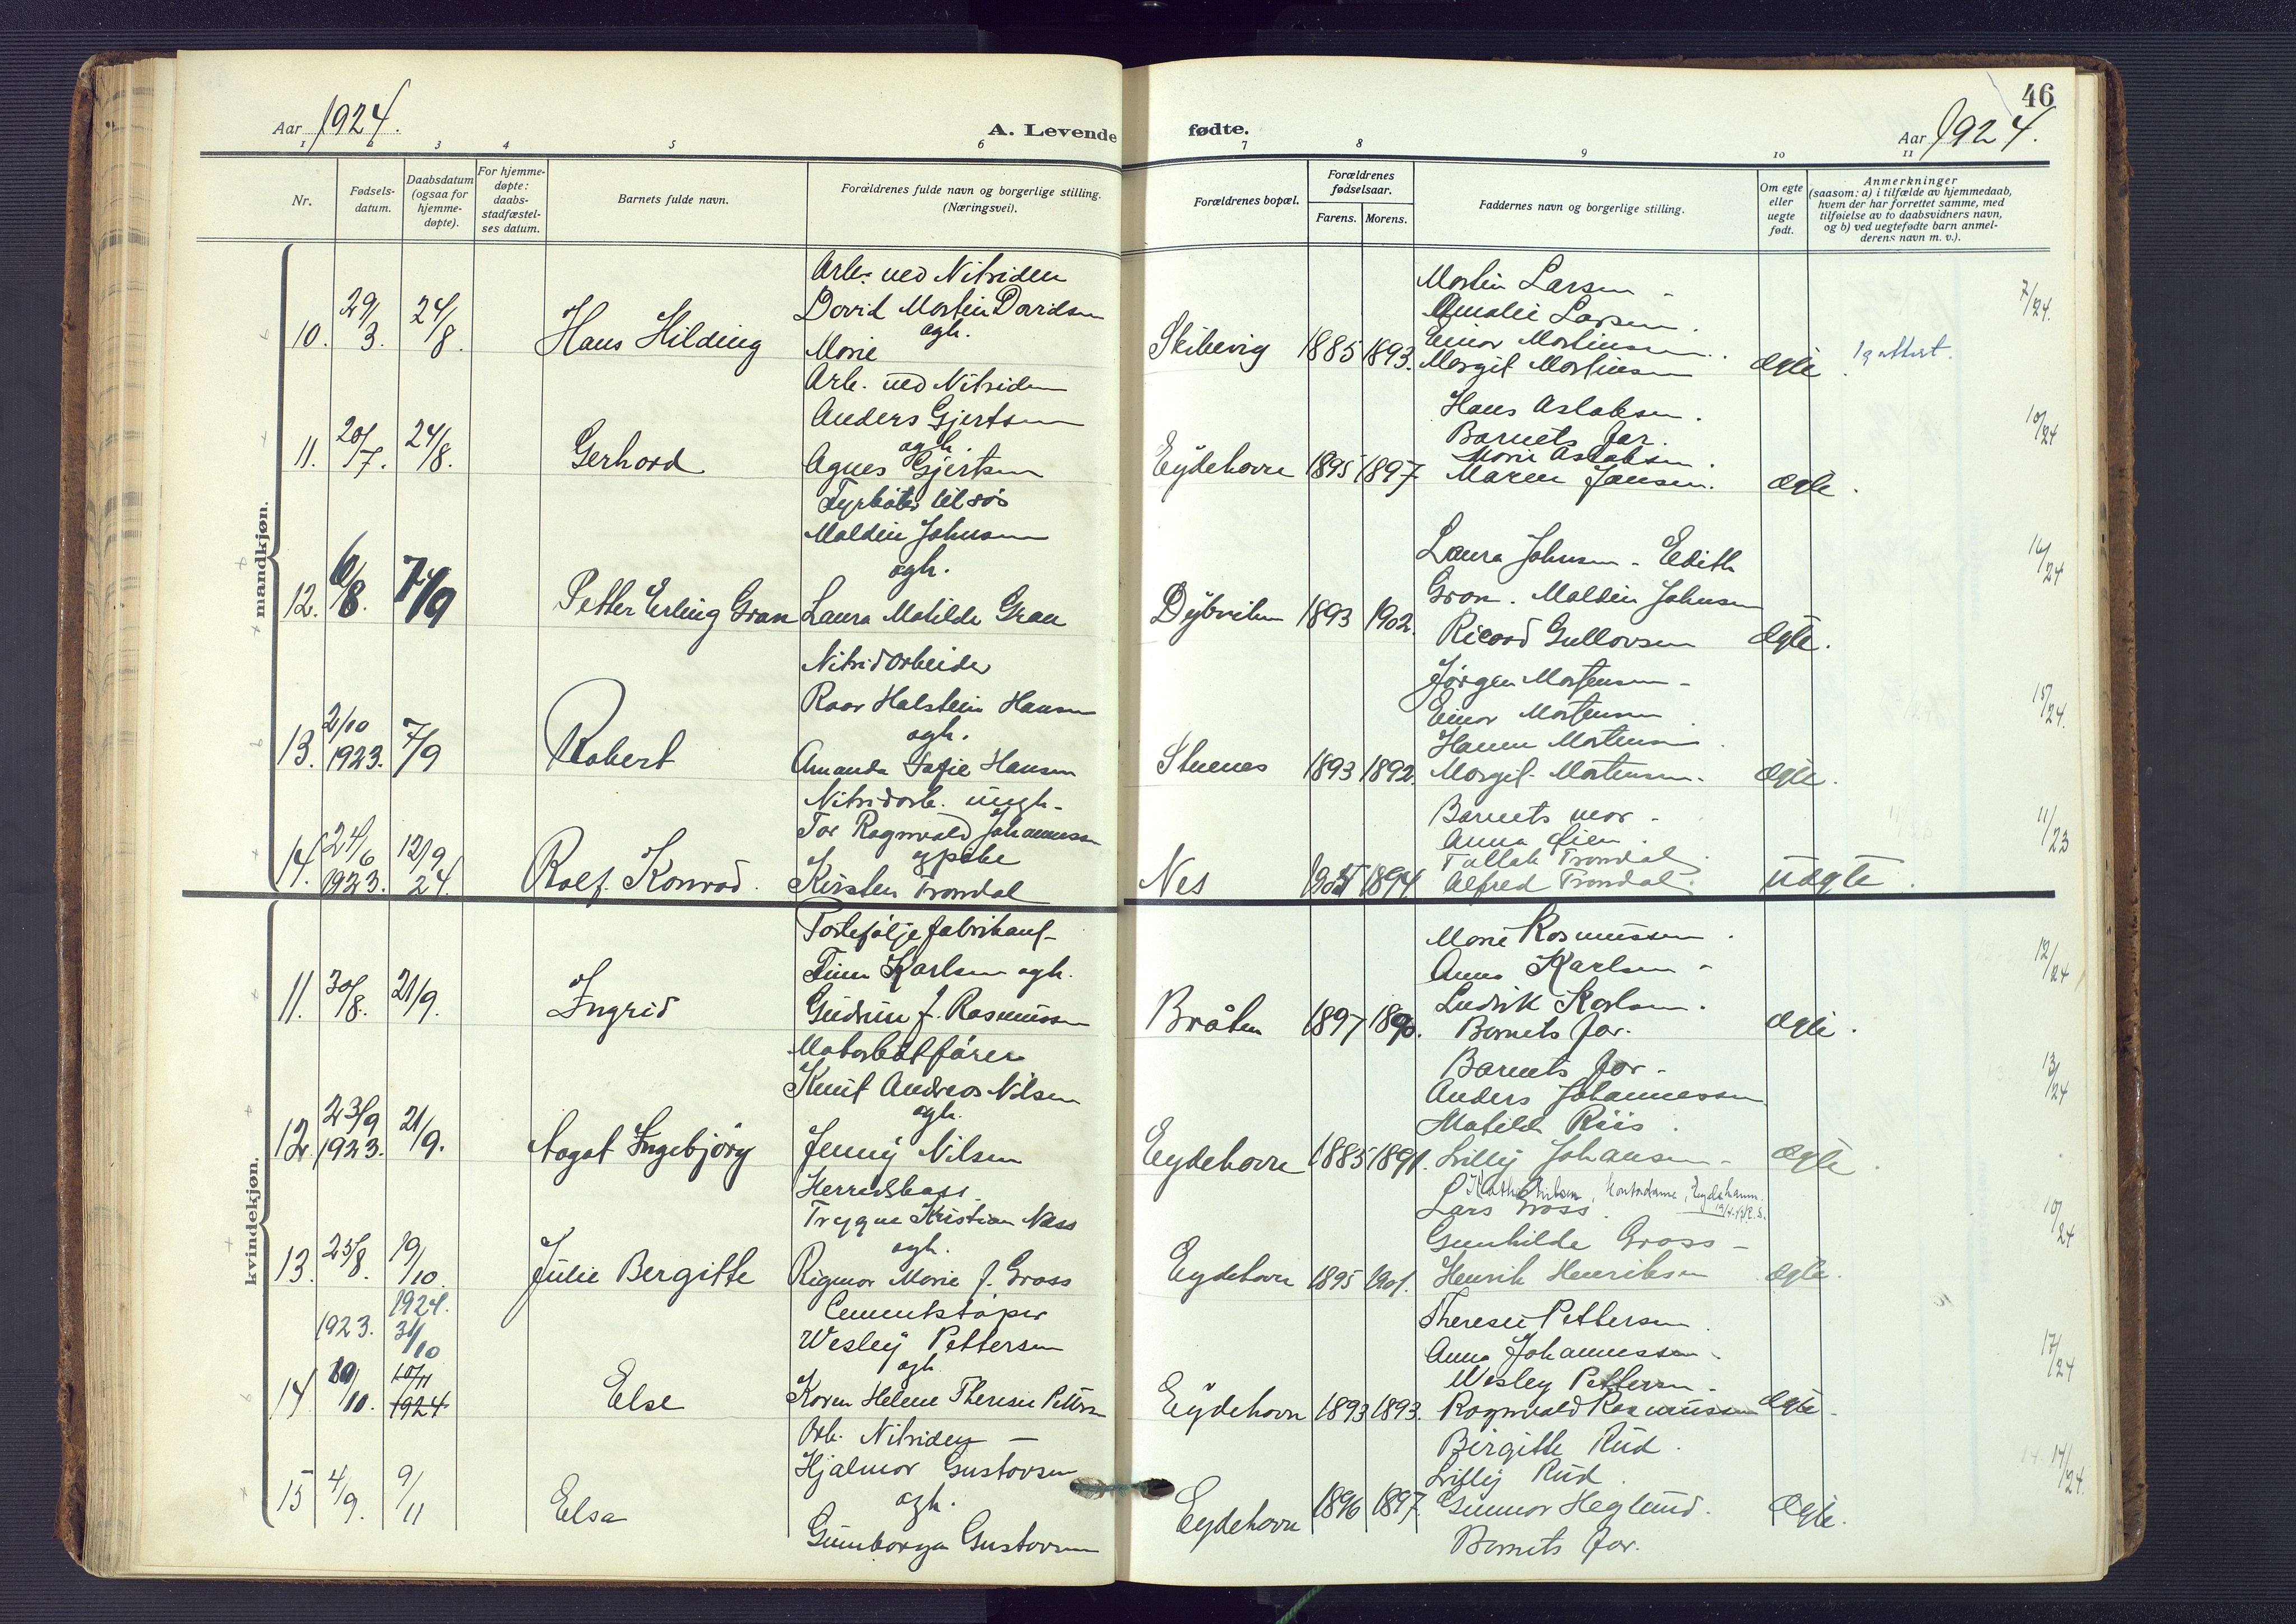 46
Aar 1924.
A. Levende fødte.
Aar 1924.
1 2 3 4 5 6 7 8 9 10 11
Nr.
Fødsels-
datum.
Daabsdatum
(ogsaa for
hjemme-
døpte).
For hjemme-
døpte:
daabs-
stadfæstel-
ses datum.
Barnets fulde navn.
Forældrenes fulde navn og borgerlige stilling.
(Næringsvei).
Forældrenes bopæl.
Forældrenes
fødselsaar.
Farens. Morens.
Faddernes navn og borgerlige stilling.
Om egte
eller
uegte
født.
Anmerkninger
(saasom: a) i tilfælde av hjemmedaab,
hvem der har forrettet samme, med
tilføielse av to daabsvidners navn,
og b) ved uegtefødte barn anmel-
derens navn m. v.).
mandkjøn.
10. 29/3. 24/8. Hans Hilding
Arb. ved Nitriden
David Martin Davidsen
agh.
Marie
Skibevig 1885 1893.
Martin Larsen
Amalie Larsen.
Einar Martinsen.
Margit Martinsen
ægte.
1 g attest.
7/24.
11. 20/7. 24/8. Gerhard
Arb. ved Nitriden
Anders Gjertsen
agh.
Agnes Gjertsen
Eydehavn 1895 1897
Hans Aslaksen.
Barnets far.
Marie Aslaksen.
Maren Jansen.
ægte.
10/24
12. 6/8. 7/9 Petter Erling Gran
Fyrbøter til søs
Maldin Johnsen
agh.
Laura Matilde Gran
Dybvik 1893 1902.
Laura Johnsen - Edith
Gran. Maldin Johnsen
Ricard Gullovsen
ægte.
16/24
13. 2/10 1923. 7/9 Robert
Nitridarbeider
Roar Halstein Hansen
agh.
Amanda Sofie Hansen
Stuenes 1893 1892.
Jørgen Mortensen -
Einar Mortensen
Hanna Mortensen.
Margit Mortensen.
ægte.
15/24.
14. 24/6 1923. 12/9 24. Rolf Konrad.
Nitridarb. ungk.
Tor Ragnvald Johannessen
og pike
Kirsten Tromdal
Nes 1894.
Barnets mor -
Anna Øien.
Tallak Tromdal.
Alfred Tromdal.
uægte.
11/23
kvindekjøn.
11. 30/8. 21/9. Ingrid
Portefølje fabrikant
Finn Karlsen agh.
Gudrun f. Rasmussen
Bråten 1897
Marie Rasmussen.
Anna Karlsen -
Ludvik Karlsen.
Barnets far.
ægte.
12/24
12. 23/9 1923. 21/9. Aagot Ingebjørg
Motorbåtfører
Knut Andreas Nilsen
agh.
Jenny Nilsen
Eydehavn 1885 1891.
Barnets far -
Anders Johannessen
Matilde Riis.
Lilly Johansen -
ægte.
13/24
13. 25/8. 19/10. Julie Bergitte
Herredskass.
Trygve Kristian Næss
agh.
Rigmor Marie f. Gross
Eydehavn 1895 1901.
Lars Gross.
Gunhilde Gross -
Henrik Henriksen
ægte.
10/24
1923. 1924. 31/10
14 10/10. 10/11 1924 Else
Cementstøper
Wesley Pettersen
agh
Karen Helene Therese Petters
Eydehavn 1893 1893.
Therese Pettersen.
Anna Johannessen.
Wesley Pettersen.
Ragnvald Rasmussen
ægte.
17/24
15 4/9. 9/11 Elsa
Arb. Nitriden
Hjalmar Gustavsen
agh.
Gunborga Gustavsen
Eydehavn 1896 1897.
Birgitte Rud.
Lilly Rud.
Gunnar Heglund.
Barnets far.
ægte.
14/24.